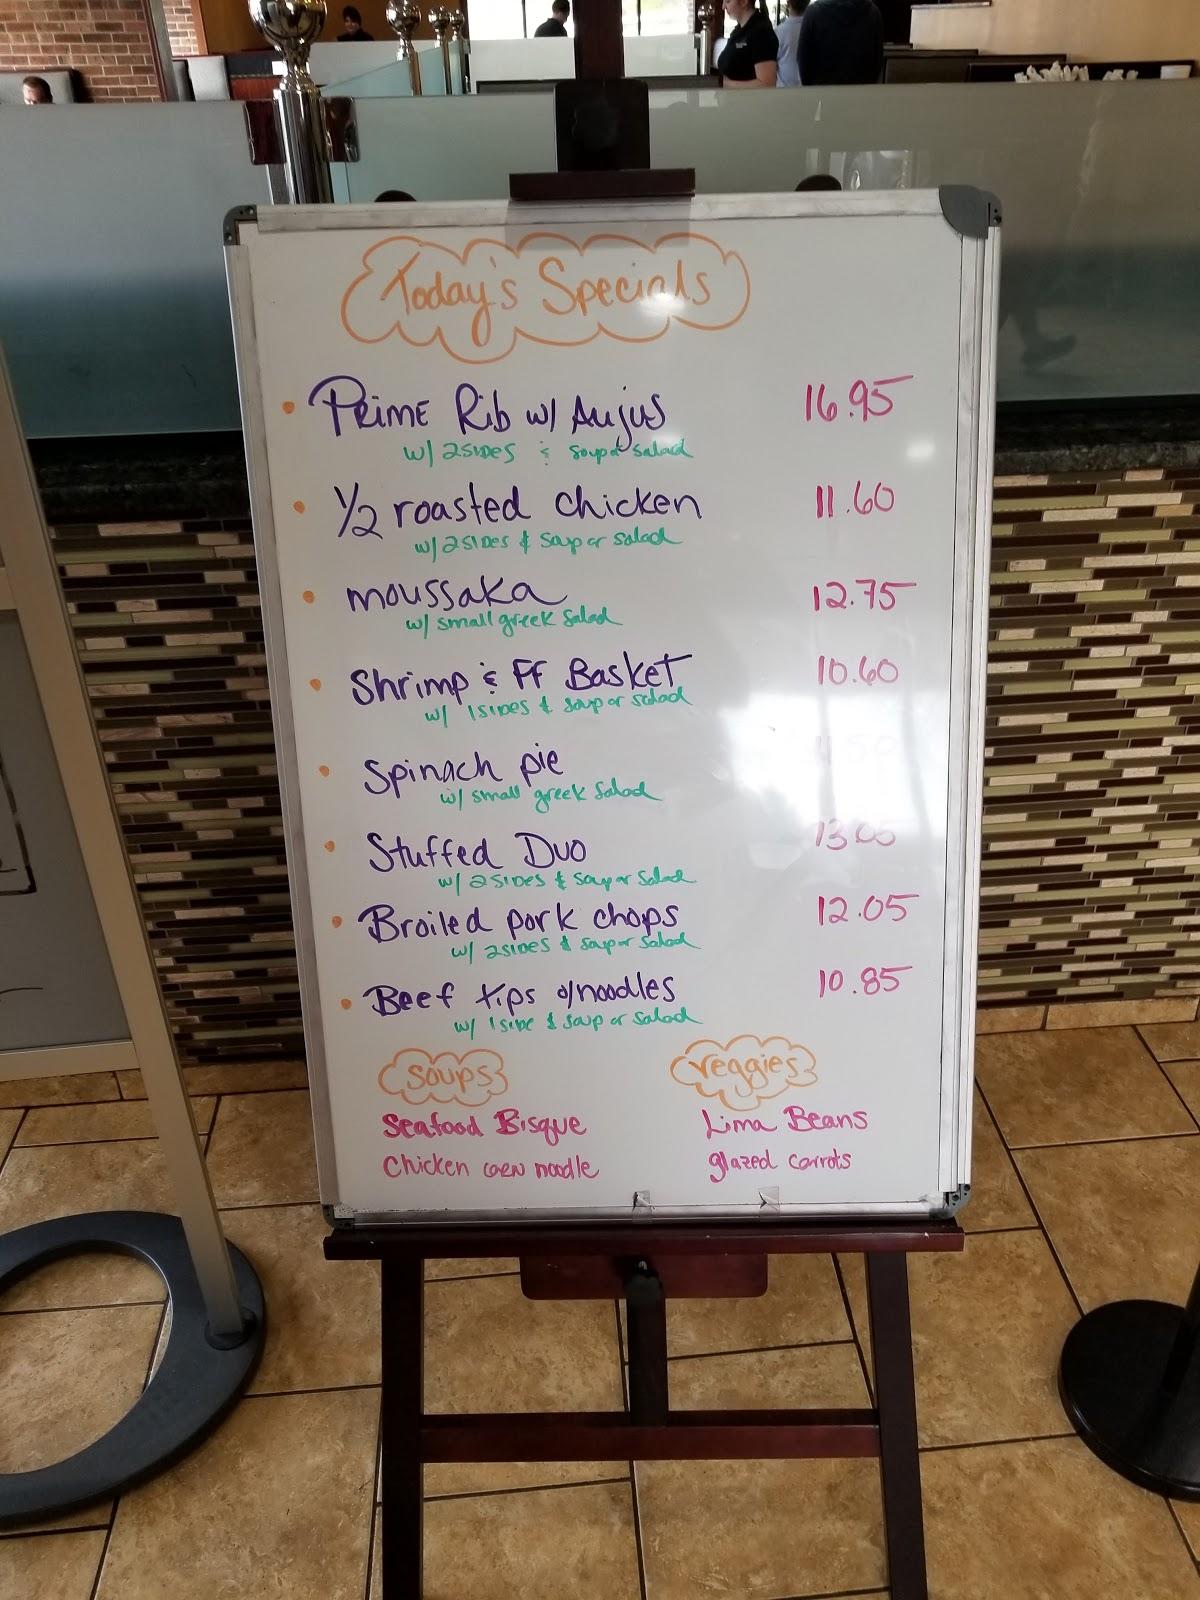 Today's Specials
• Prime Rib w/ Aujus 16.95
w/ 2 sides & soup or salad
• 1/2 roasted chicken 11.60
w/ 2 sides & soup or salad
• moussaka 12.75
w/ small greek salad
• Shrimp & FF Basket 10.60
w/ 1 sides & soup or salad
• Spinach pie
w/ small greek salad
• Stuffed Duo 13.05
w/ 2 sides & soup or salad
• Broiled pork chops 12.05
w/ 2 sides & soup or salad
• Beef tips o/noodles 10.85
w/ 1 side & soup or salad
Soups
Seafood Bisque
Chicken noodle
Veggies
Lima Beans
glazed carrots